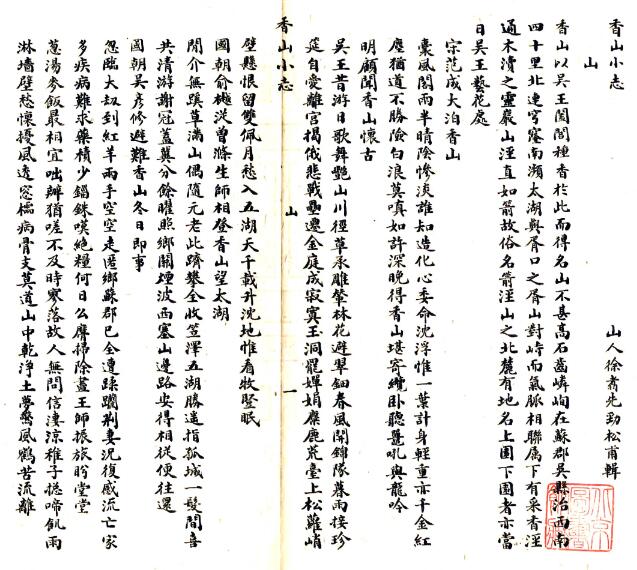 香山小志
山人徐翥先勁松甫輯
山
香山以吳王闔閭種香於此而得名山不甚高石齒嶙峋在蘇郡吳縣治西南
四十里北連穹窿南瀕太湖與胥口之胥山對峙而氣脉相聯屬下有采香涇
通木瀆之靈巖山涇直如箭故俗名箭涇山之北麓有地名上園下園者亦當
日吳王藝花處
宗范成大泊香山
橐風閣雨半晴陰慘淡誰知造化心委命沈浮惟一葉計身輕重亦千金紅
塵猶道不勝險白浪莫嗔如許深晚得香山堪寄纜卧聽鼉吼與龍吟
明顧聞香山懷古
吳王昔游日歌舞艷山川徑草承雕輦林花避翠鈿春風開錦隊暮雨接珍
筵自愛離宮揭俄悲戰壘遷金庭成寂寞玉洞罷嬋娟麋鹿荒臺上松蘿峭
香山小志
山
一
壁懸恨留雙佩月愁入五湖天千載升沈地惟看牧豎眠
國朝俞樾從曾滌生師相登香山望太湖
閒介無蹊草滿山偶隨元老此躋攀全收笠澤五湖勝遙指孤城一髮間喜
共清游謝冠蓋冀分餘曜照鄉關煙波西塞山邊路安得相從便往還
國朝吳彥修避難香山冬日即事
忽臨大劫到紅羊兩手空空走匿鄉蘇郡已全遭蹂躪荆妻況復感流亡家
多疾病難求藥積少錙銖嘆絕糧何日么麽掃除蓋王師振旅盼堂堂
蔥湯麥飯最相宜咄辦猶嗟不及時寒落故人無問信淒涼稚子總啼飢雨
淋墻壁愁懷擾風透窓櫺病骨支莫道山中乾淨土夢驚風鶴苦流離